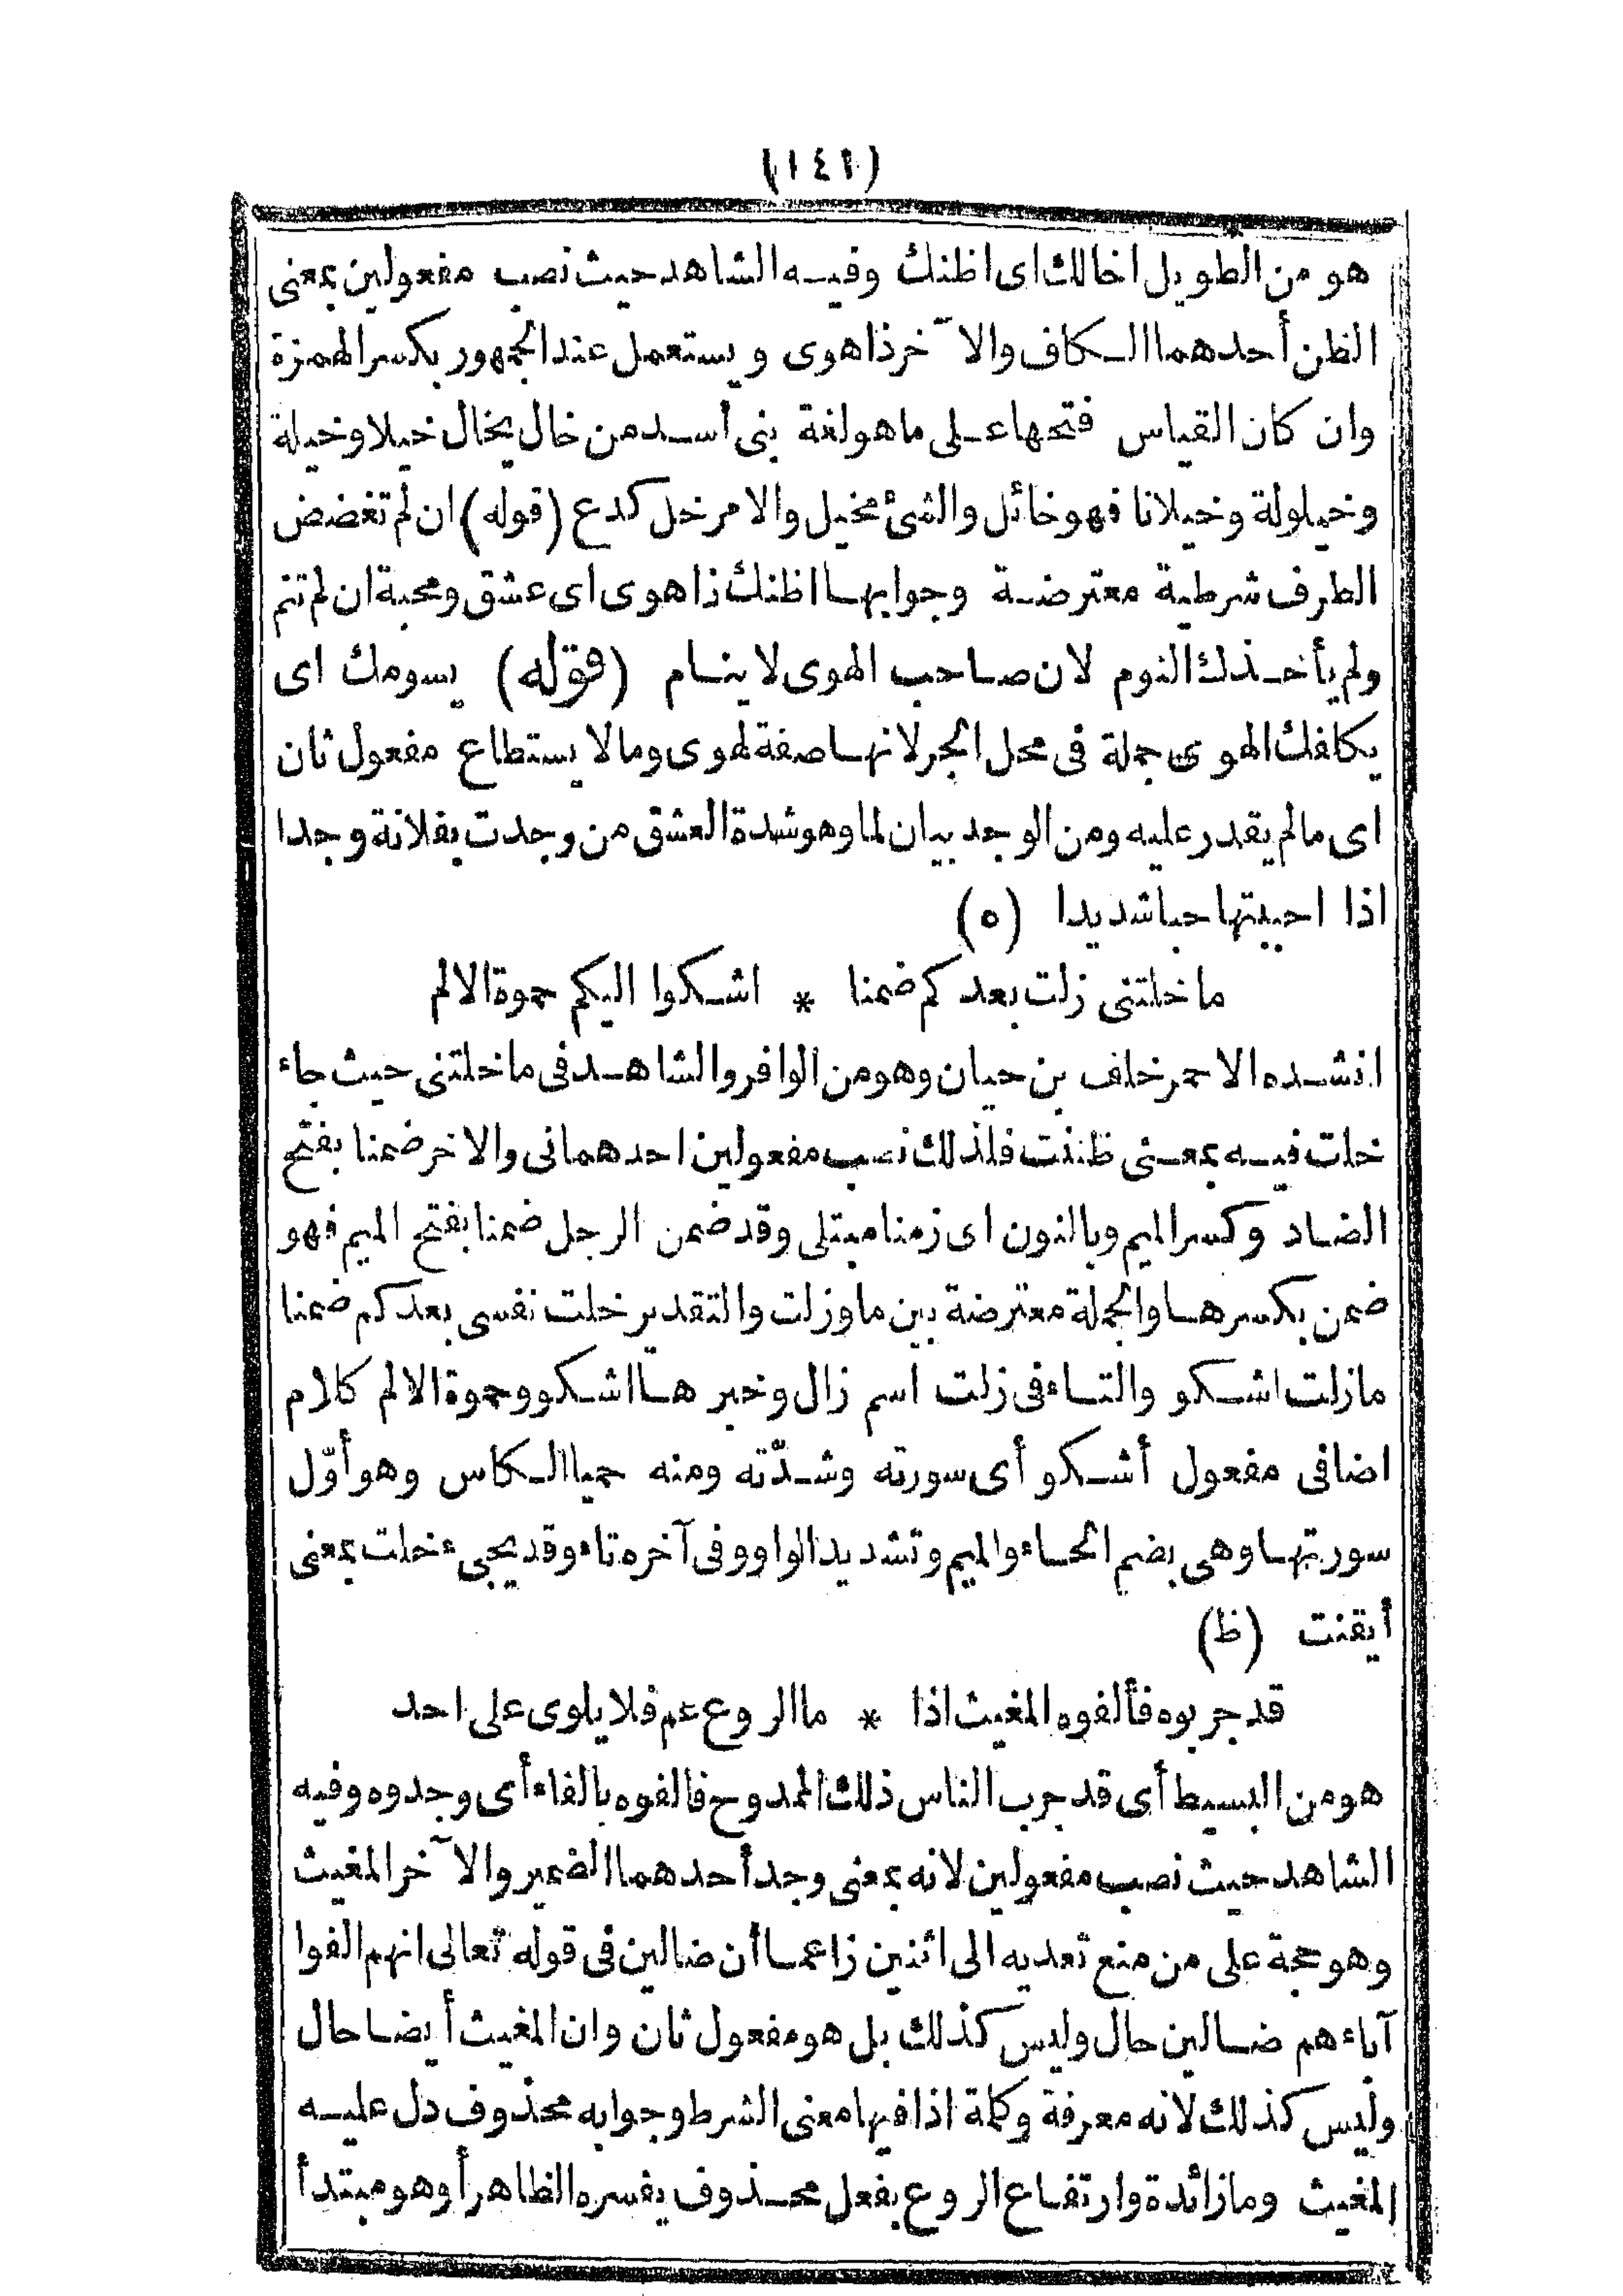 (١٤١)
هو من الطويل اخالك اى اظنك وفيه الشاهد حيث نصب مفعولين بمعنى
الظن أحدهما الكاف والآخر ذا هوى ويستعمل عند الجمهور بكسر الهمزة
وان كان القياس فتحها على ما هو لغة بنى أسد من خال يخال خيلا وخيلة
وخيلولة وخيلانا فهو خائل والشئ مخيل والامر خل كدع (قوله) ان لم تغضض
الطرف شرطية معترضة وجوابها اظنك ذا هوى اى عشق ومحبة ان لم تنم
ولم يأخذك النوم لان صاحب الهوى لا ينام (قوله) يسومك اى
يكافك الهوى جملة فى محل الجر لانها صفة لهوى وما لا يستطاع مفعول ثان
اى ما لم يقدر عليه ومن الوجد بيان لما وهو شدة العشق من وجدت بفلانة وجدا
اذا احببتها حبا شديدا (ه)
ما خلتنى زلت بعدكم ضمنا * اشكوا اليكم حموة الالم
انشده الاحمر خلف بن حيان وهو من الوافر والشاهد فى ما خلتنى حيث جاء
خلت فيه بمعنى ظننت فلذلك نصب مفعولين احدهما نى والاخر ضمنا بفتح
الضاد وكسر الميم وبالنون اى زمنا مبتلى وقد ضمن الرجل ضمنا بفتح الميم فهو
ضمن بكسرها والجملة معترضة بين ما وزلت والتقدير خلت نفسى بعدكم ضمنا
ما زلت اشكو والتاء فى زلت اسم زال وخبرها اشكو وحموة الالم كلام
اضافى مفعول أشكو أى سورته وشدّته ومنه حميا الكاس وهو أوّل
سورتها وهى بضم الحاء والميم وتشديد الواو وفى آخره تاء وقد يجىء خلت بمعنى
أيقنت (ظ)
قد جربوه فألفوه المغيث اذا * ما الروع عم فلا يلوى على احد
هو من البسيط أى قد جرب الناس ذلك الممدوح فالفوه بالفاء أى وجدوه وفيه
الشاهد حيث نصب مفعولين لانه بمعنى وجد أحدهما الضمير والآخر المغيث
وهو حجة على من منع تعديه الى اثنين زاعما أن ضالين فى قوله تعالى انهم الفوا
آباءهم ضالين حال وليس كذلك بل هو مفعول ثان وان المغيث أيضا حال
وليس كذلك لانه معرفة وكلمة اذا فيها معنى الشرط وجوابه محذوف دل عليه
المغيث وما زائدة وارتفاع الروع بفعل محذوف يفسره الظاهر أو هو مبتدأ